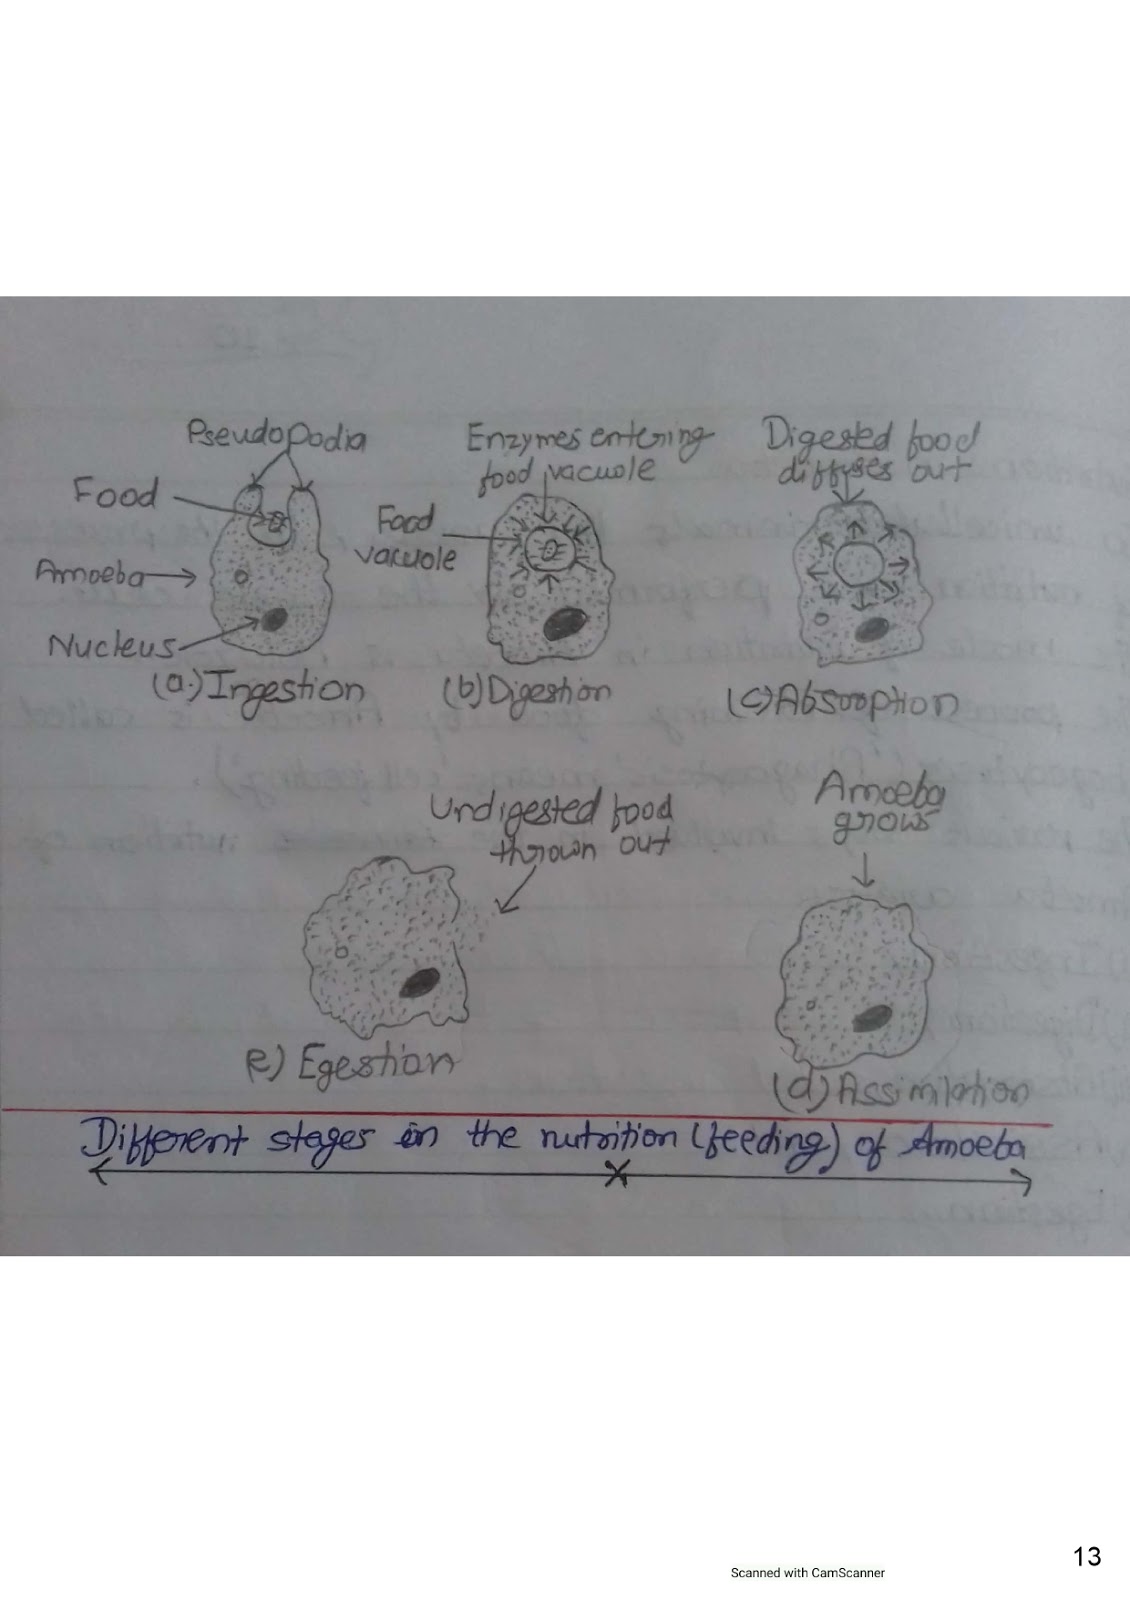 Pseudopodia
Food
Amoeba
Nucleus
(a.) Ingestion
Enzymes entering
food vacuole
Food
vacuole
(b) Digestion
Digested food
diffuses out
(c) Absorption
Undigested food
thrown out
e) Egestion
Amoeba
grows
(d) Assimilation
Different stages in the nutrition (feeding) of Amoeba
13
Scanned with CamScanner